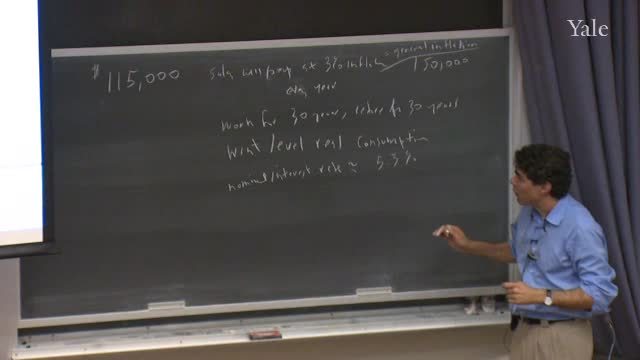 Yale
$115,000 Salary will go up at 3% inflation = general inflation
150,000
every year
Work for 30 years, retire for 30 years
Want level real consumption
nominal interest rate ≈ 5.3%